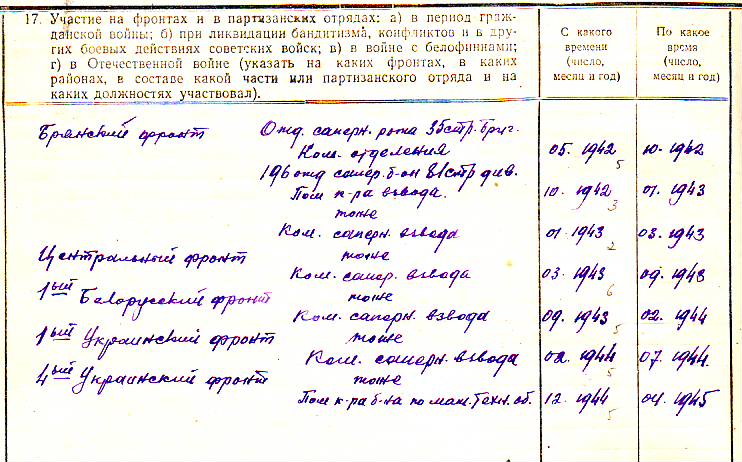 17. Участие на фронтах и в партизанских отрядах: а) в период граж-
данской войны; б) при ликвидации бандитизма, конфликтов и в дру-
гих боевых действиях советских войск; в) в войне с белофиннами;
г) в Отечественной войне (указать на каких фронтах, в каких
районах, в составе какой части или партизанского отряда и на
каких должностях участвовал).
С какого
времени
(число,
месяц и год)
По какое
время
(число,
месяц и год)
Брянский фронт Отд. саперн. рота 35 стр. бриг.
Ком. отделения 05. 1942 5 10. 1942
196 отд сапер. б-он 81 стр див.
Пом к-ра взвода. 10. 1942 3 01. 1943
тоже
Ком. саперн. взвода 01 1943 2 03. 1943
Центральный фронт тоже
Ком. сапер. взвода 03. 1943 6 09. 1943
1ый Белорусский фронт тоже
Ком. саперн. взвода 09. 1943 5 02. 1944
1ый Украинский фронт тоже
Ком. саперн. взвода 02. 1944 5 07. 1944.
4ый Украинский фронт тоже
Пом к-ра б-на по мат. техн. об. 12. 1944 5 04. 1945